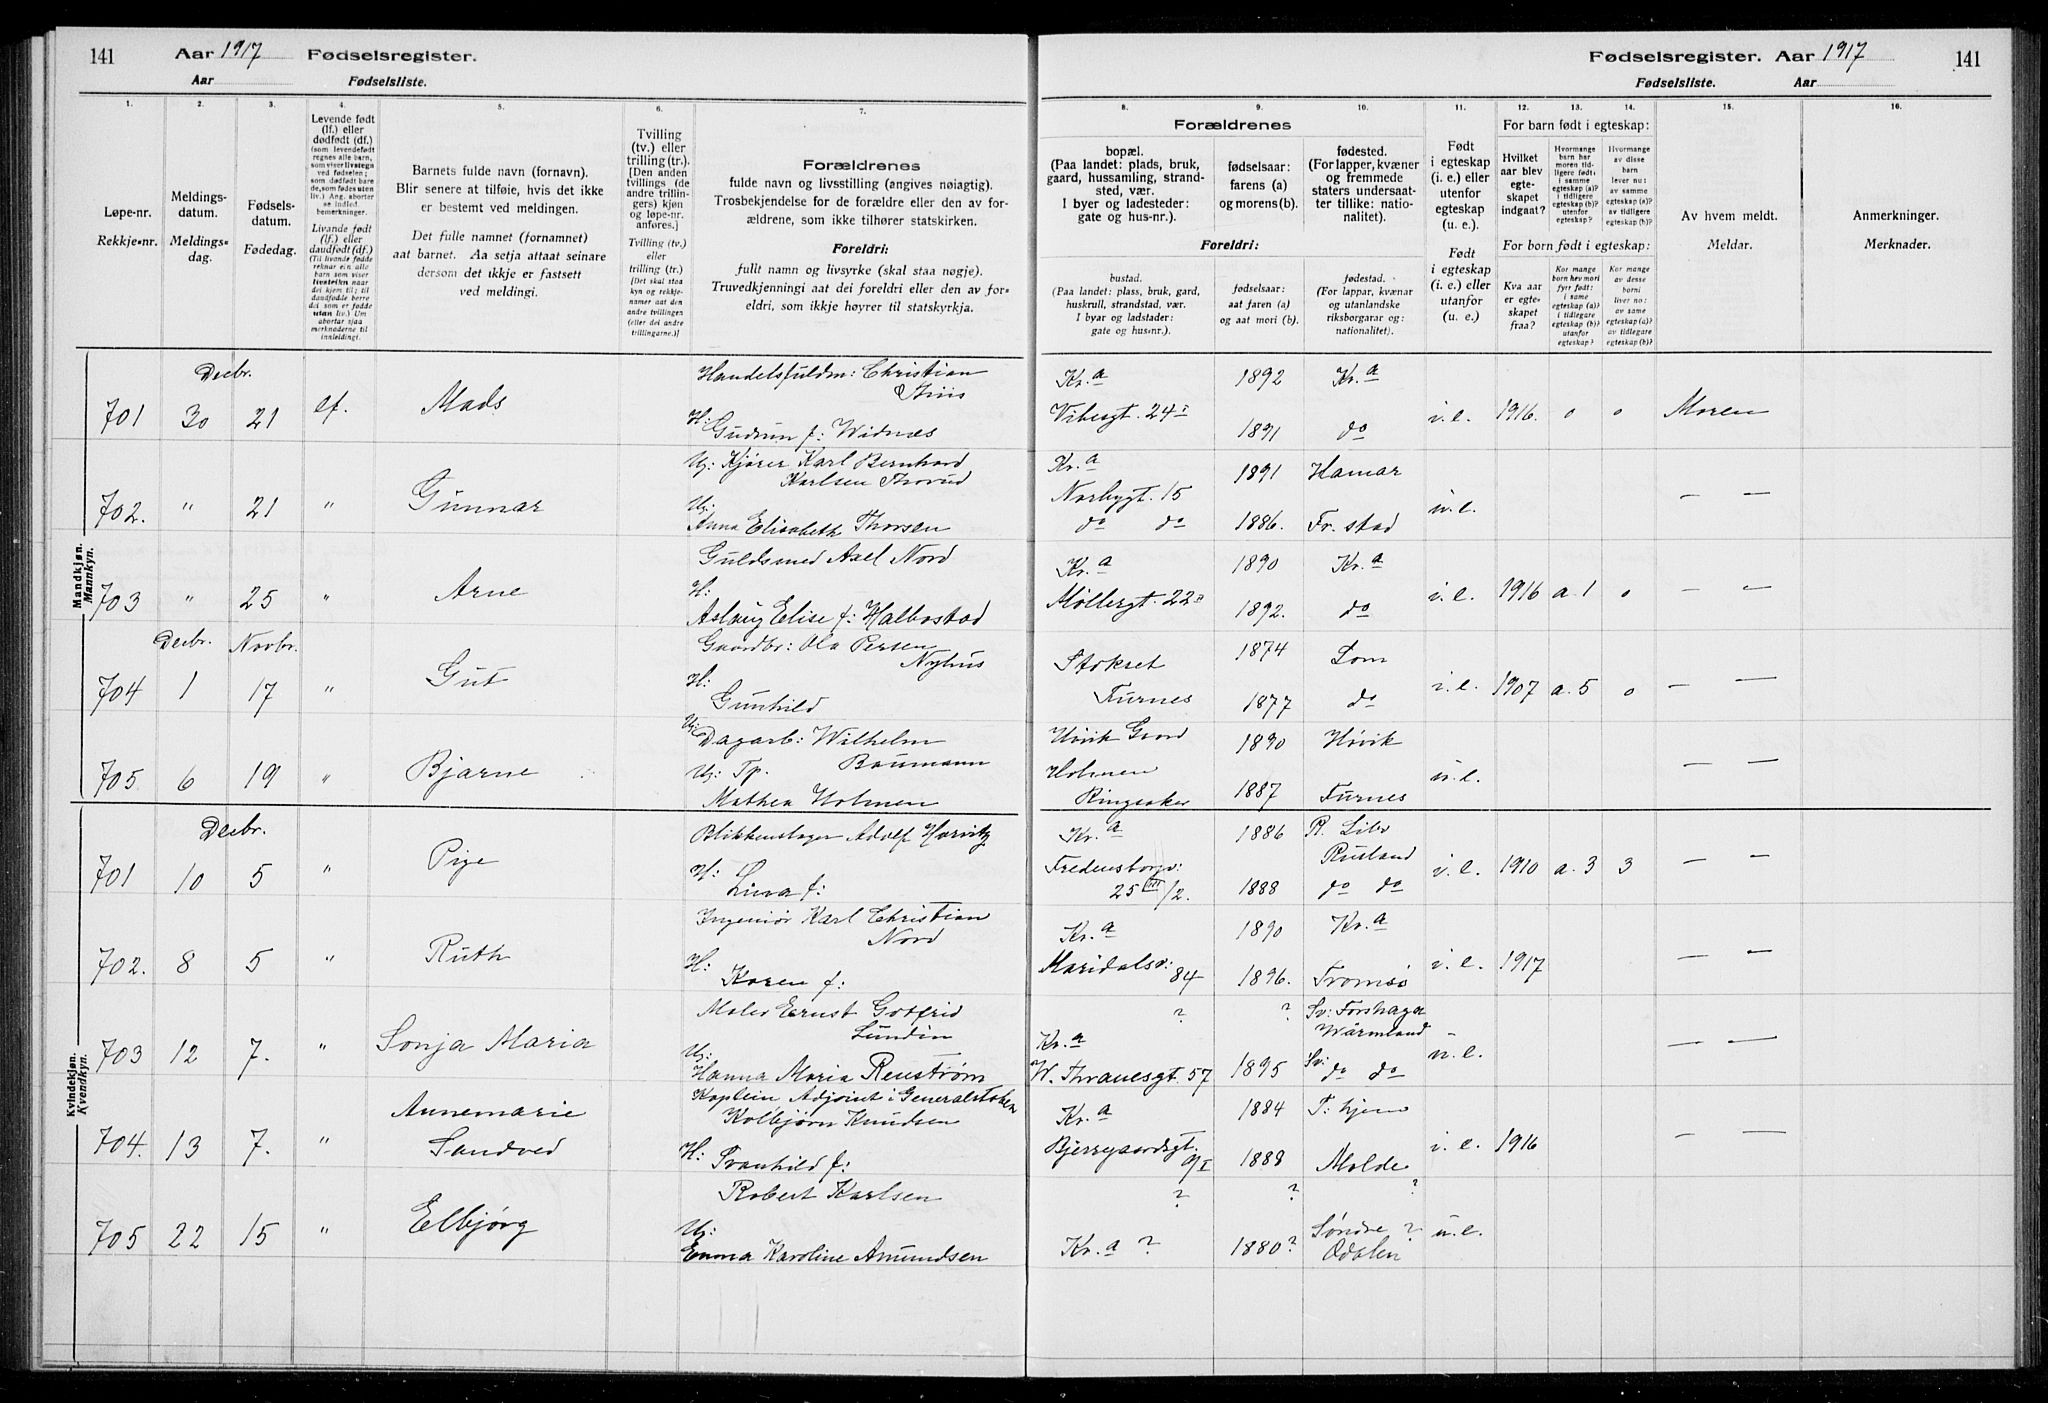 141 Aar 1917 Fødselsregister.
Aar Fødselsliste.
1.
2.
3.
4.
5.
6.
7.
Løpe-nr.
Rekkje-nr.
Meldings-
datum.
Meldings-
dag.
Fødsels-
datum.
Fødedag.
Levende født
(lf.) eller
dødfødt (df.)
(som levendefødt
regnes alle barn,
som viser livstegn
ved fødselen;
som dødfødt bare
de, som fødes uten
liv.) Ang. aborter
se indled.
bemerkninger.
Livande født
(lf.) eller
daudfødt (df.)
(Til livande fødde
reknar ein alle
barn som viser
livsteikn naar
dei kjem til; til
daudfødde berre
dei som er fødde
utan liv.) Um
abortar sjaa
merknaderne til
innleidingi.
Barnets fulde navn (fornavn).
Blir senere at tilføie, hvis det ikke
er bestemt ved meldingen.
Det fulle namnet (fornamnet)
aat barnet. Aa setja attaat seinare
dersom det ikkje er fastsett
ved meldingi.
Tvilling
(tv.) eller
trilling (tr.).
[Den anden
tvillings (de
andre trillin-
gers) kjøn
og løpe-nr.
anføres.]
Tvilling (tv.)
eller
trilling (tr.)
[Det skal staa
kyn og rekkje-
numer aat den
andre tvillingen
(eller dei andre
trillingarne.)]
Forældrenes
fulde navn og livsstilling (angives nøiagtig).
Trosbekjendelse for de forældre eller den av for-
ældrene, som ikke tilhører statskirken.
Foreldri:
fullt namn og livsyrke (skal staa nøgje).
Truvedkjenningi aat dei foreldri eller den av for-
eldri, som ikkje høyrer til statskyrkja.
Mandkjøn.
Mannkyn.
Decbr.
701 30 21 lf. Mads Handelsfuldm: Christian
H:
Gudrun f: Widnæs
702. " 21 " Gunnar U: Kjører Karl Bernhard
Karlsen Thorud
U:
Anna Elisabeth Thorsen
703 " 25 " Arne Guldsmed Axel Nord
H:
Aslaug Elise f: Halbostad
Decbr. Novbr.
704 1 17 " Gut Gaardbr: Ola Persen
Nyhus
H:
Gunhild
705 6 19 " Bjarne U: Dagarb: Wilhelm
Baumann
U: Tp.
Mathea Holmen
Kvindekjøn.
Kvendkyn.
Decbr.
701 10 5 " Pige Blikkenslager Adolf Horvitz
H:
Lina f:
702. 8 5 " Ruth Ingeniør Karl Christian
Nord
H:
Karen f:
703 12 7. " Sonja Maria Maler Ernst Gotfrid
Lundin
U:
Hanna Maria Renstrøm
704. 13 7. " Annemarie
Sandved
Kaptein Adjoint i Generalstaben
Kolbjørn Knudsen
H: Tranhild f:
705 22 15 " Elbjørg Robert Karlsen
U:
Emma Karoline Amundsen
Fødselsregister. Aar 1917 141
Fødselsliste. Aar
8.
9.
10.
11.
12.
13.
14.
15.
16.
Forældrenes
bopæl.
(Paa landet: plads, bruk,
gaard, hussamling, strand-
sted, vær.
I byer og ladesteder:
gate og hus-nr.).
fødselsaar:
farens (a)
og morens (b).
fødested.
(For lapper, kvæner
og fremmede
staters undersaat-
ter tillike: natio-
nalitet).
Foreldri:
bustad.
(Paa landet: plass, bruk, gard,
huskrull, strandstad, vær.
I byar og ladstader:
gate og hus-nr.).
fødselsaar:
aat faren (a)
og aat mori (b).
fødestad.
(For lappar, kvænar
og utanlandske
riksborgarar og:
nationalitet).
Født
i egteskap
(i. e.) eller
utenfor
egteskap
(u. e.).
Født
i egteskap
(i. e.) eller
utanfor
egteskap
(u. e.).
For barn født i egteskap:
Hvilket
aar blev
egte-
skapet
indgaat?
Hvormange
barn har
moren tid-
ligere født:
i samme
egteskap (a)?
i tidligere
egteskap (b)?
utenfor
egteskap?
Hvormange
av disse
barn
lever nu:
av samme
egteskap (a)?
av tidligere
egteskap (b)?
For born født i egteskap:
Kva aar
er egte-
skapet
fraa?
Kor mange
born hev mori
fyrr født:
i same
egteskap (a)?
i tidlegare
egteskap (b)?
utanfor
egteskap?
Kor mange
av desse
borni
liver no:
av same
egteskap (a)?
av tidlegare
egteskap (b)?
Av hvem meldt.
Meldar.
Anmerkninger.
Merknader.
Kr.a 1892 Kr.a
Vibesgt. 24 I 1891 do i.e. 1916. o o Moren
Kr.a 1891 Hamar
Norbygt. 15 u.e. — —
do do 1886. Fr.stad
Kr.a 1890 Kr.a
Møllergt. 22 1892. do i.e. 1916 a.1 o — —
Stokset 1874 Lom
Furnes 1877 do i.e. 1907 a.5 o — —
Høvik Gaard 1890 Høvik
Holmen u.e. — —
Ringsaker 1887 Furnes
Kr.a 1886 R.
Rusland
Fredensborgv: i.e. 1910 a.3 3 — —
25 III/2. 1888 do do
Kr.a 1890 Kr.a
Maridalsv: i.e. 1917 — —
84 1896. Tromsø
? ? Sv: Forshaga
Wärmland
Kr.a u.e. — —
W. Thranesgt. 57 1895 Sv: do do
Kr.a 1884 T:hjem
Bjerregaardsgt. i.e. 1916 — —
9 I 1888 Molde
? ? ?
Kr.a ? 1880? Søndre ?
Odalen u.e.